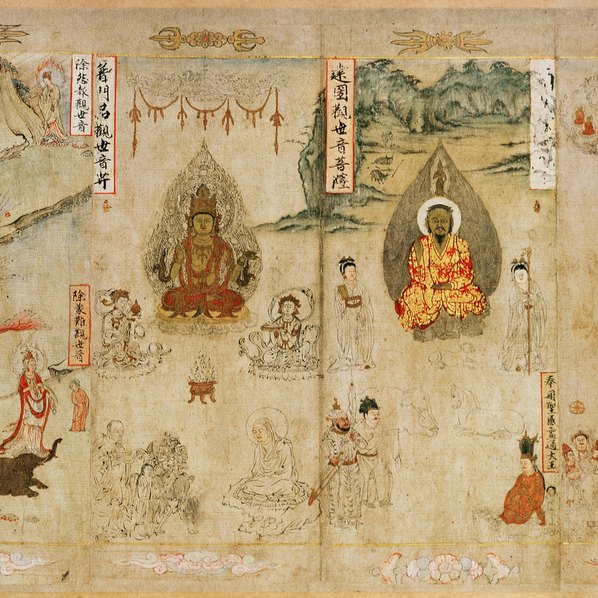 建國觀世音菩薩
奉冊聖感靈通大王
普門品觀世音𦬇
除怨報觀世音
除象難觀世音